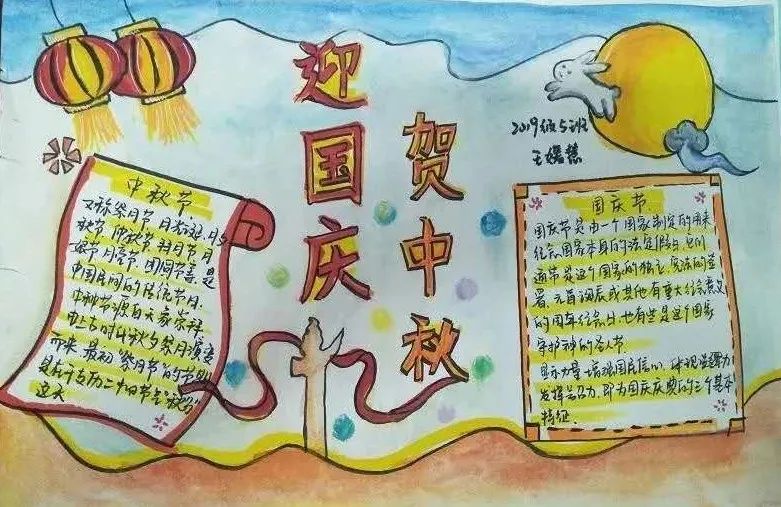 迎国庆
贺中秋
2019级5班
中秋节
又称祭月节、月光诞、月夕
秋节、仲秋节、拜月节、月
娘节、月亮节、团圆节等,是
中国民间的传统节日。
中秋节源自天象崇拜
由上古时代秋夕祭月演变
而来。最初“祭月节”的节期
是在干支历二十四节气“秋分”
这天
国庆节
国庆节是由一个国家制定的用来
纪念国家本身的法定假日。它们
通常是这个国家的独立、宪法的签
署、元首诞辰或其他有重大纪念意义
的周年纪念日;也有些是这个国家
守护神的圣人节。
显示力量、增强国民信心,体现凝聚力
发挥号召力,即为国庆庆典的三个基本
特征。